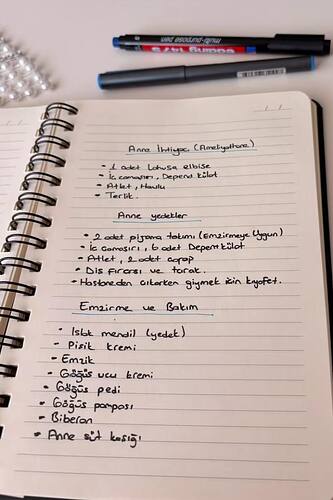 multi-purpose pen
edding 1475
Anne İhtiyaç (Ameliyathane)
- 1 adet Lohusa elbise
- İç çamaşırı, Depend külot
- Atlet, Havlu
- Terlik.
Anne yedekler
- 2 adet pijama takımı (Emzirmeye Uygun)
- İç çamaşırı, 6 adet Depent külot
- Atlet, 2 adet çorap
- Diş fırçası ve tarak.
- Hastaneden çıkarken giymek için kıyafet.
Emzirme ve Bakım
- Islak mendil (yedek)
- Pişik kremi
- Emzik
- Göğüs ucu kremi
- Göğüs pedi
- Göğüs pompası
- Biberon
- Anne süt kaşığı